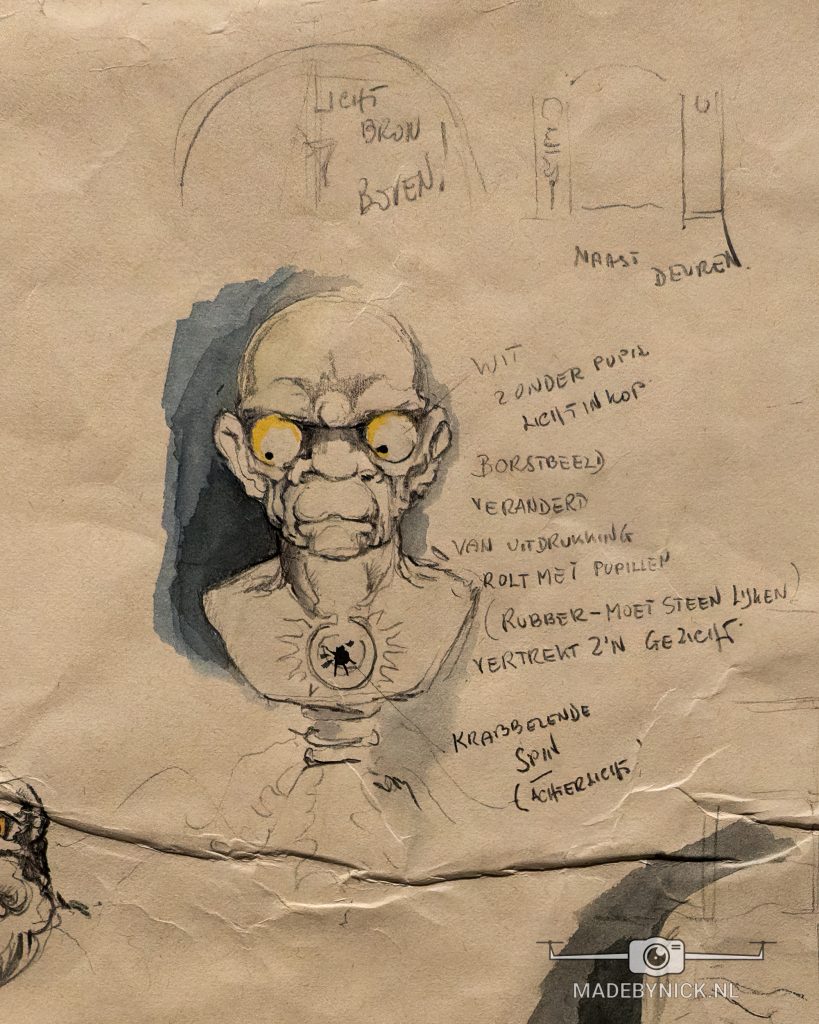 LICHT
BRON
BOVEN!
NAAST
DEUREN.
WIT
ZONDER PUPIL
LICHT IN KOP
BORSTBEELD
VERANDERD
VAN UITDRUKKING
ROLT MET PUPILLEN
(RUBBER-MOET STEEN LIJKEN)
VERTREKT Z'N GEZICHT.
KRABBELENDE
SPIN
(ACHTERLICHT)
MADEBYNICK.NL